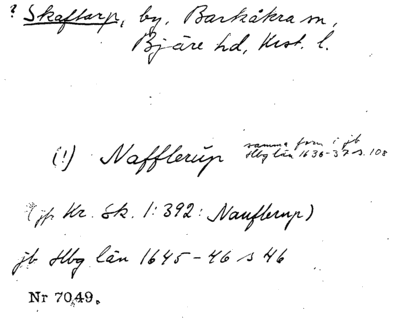 ? Skaftarp, by, Barkåkra sn,
Bjäre hd, Krist. l.
(!) Nafflerup samma form i jb
Hbg län 1636-37 s. 108
(jfr Kr. Sk. 1:392: Nauflerup)
jb Hbg län 1645-46 s 46
Nr 7049.